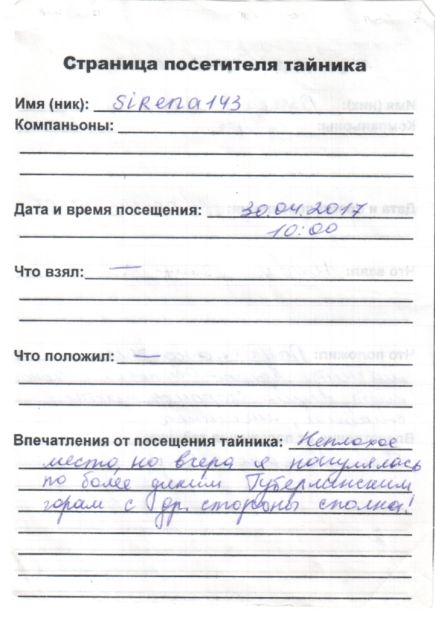 Страница посетителя тайника
Имя (ник): Sirena143
Компаньоны:
Дата и время посещения: 30.04.2017
10:00
Что взял: —
Что положил: —
Впечатления от посещения тайника: Неплохое
место, но вчера я погулялась
по более диким Губерлинским
горам с др. стороны сполна!